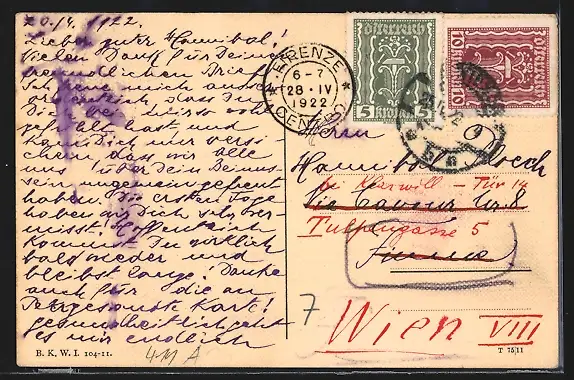 20./4. 1922.
Lieber guter Hannibal!
Vielen Dank für Deinen
freundlichen Brief.
Ich freue mich ausser-
ordentlich dass Du
Dich bei so wohl
gefühlt hast und
kann Dich nur versi-
chern dass wir alle
uns über Dein Beimuns-
sein ungemein gefreut
haben. Die ersten Tage
haben wir Dich sehr ver-
misst. Hoffentlich
kommst Du wirklich
bald wieder und
bleibst lange. Danke
auch für die an
gesandte Karte!
gesundheitlich geht
es mir endlich
B. K. W. I. 104-11.
411 A
FIRENZE
6-7
28·IV
1922
CENTRO
Österreich
5 Kronen 5
Österreich
10 Kronen 10
Herrn
Hannibal
bei Klarwill - Tür 14
Via Cavour Nr. 8
Tulpengasse 5
Fiume
7
Wien VIII
T 7511